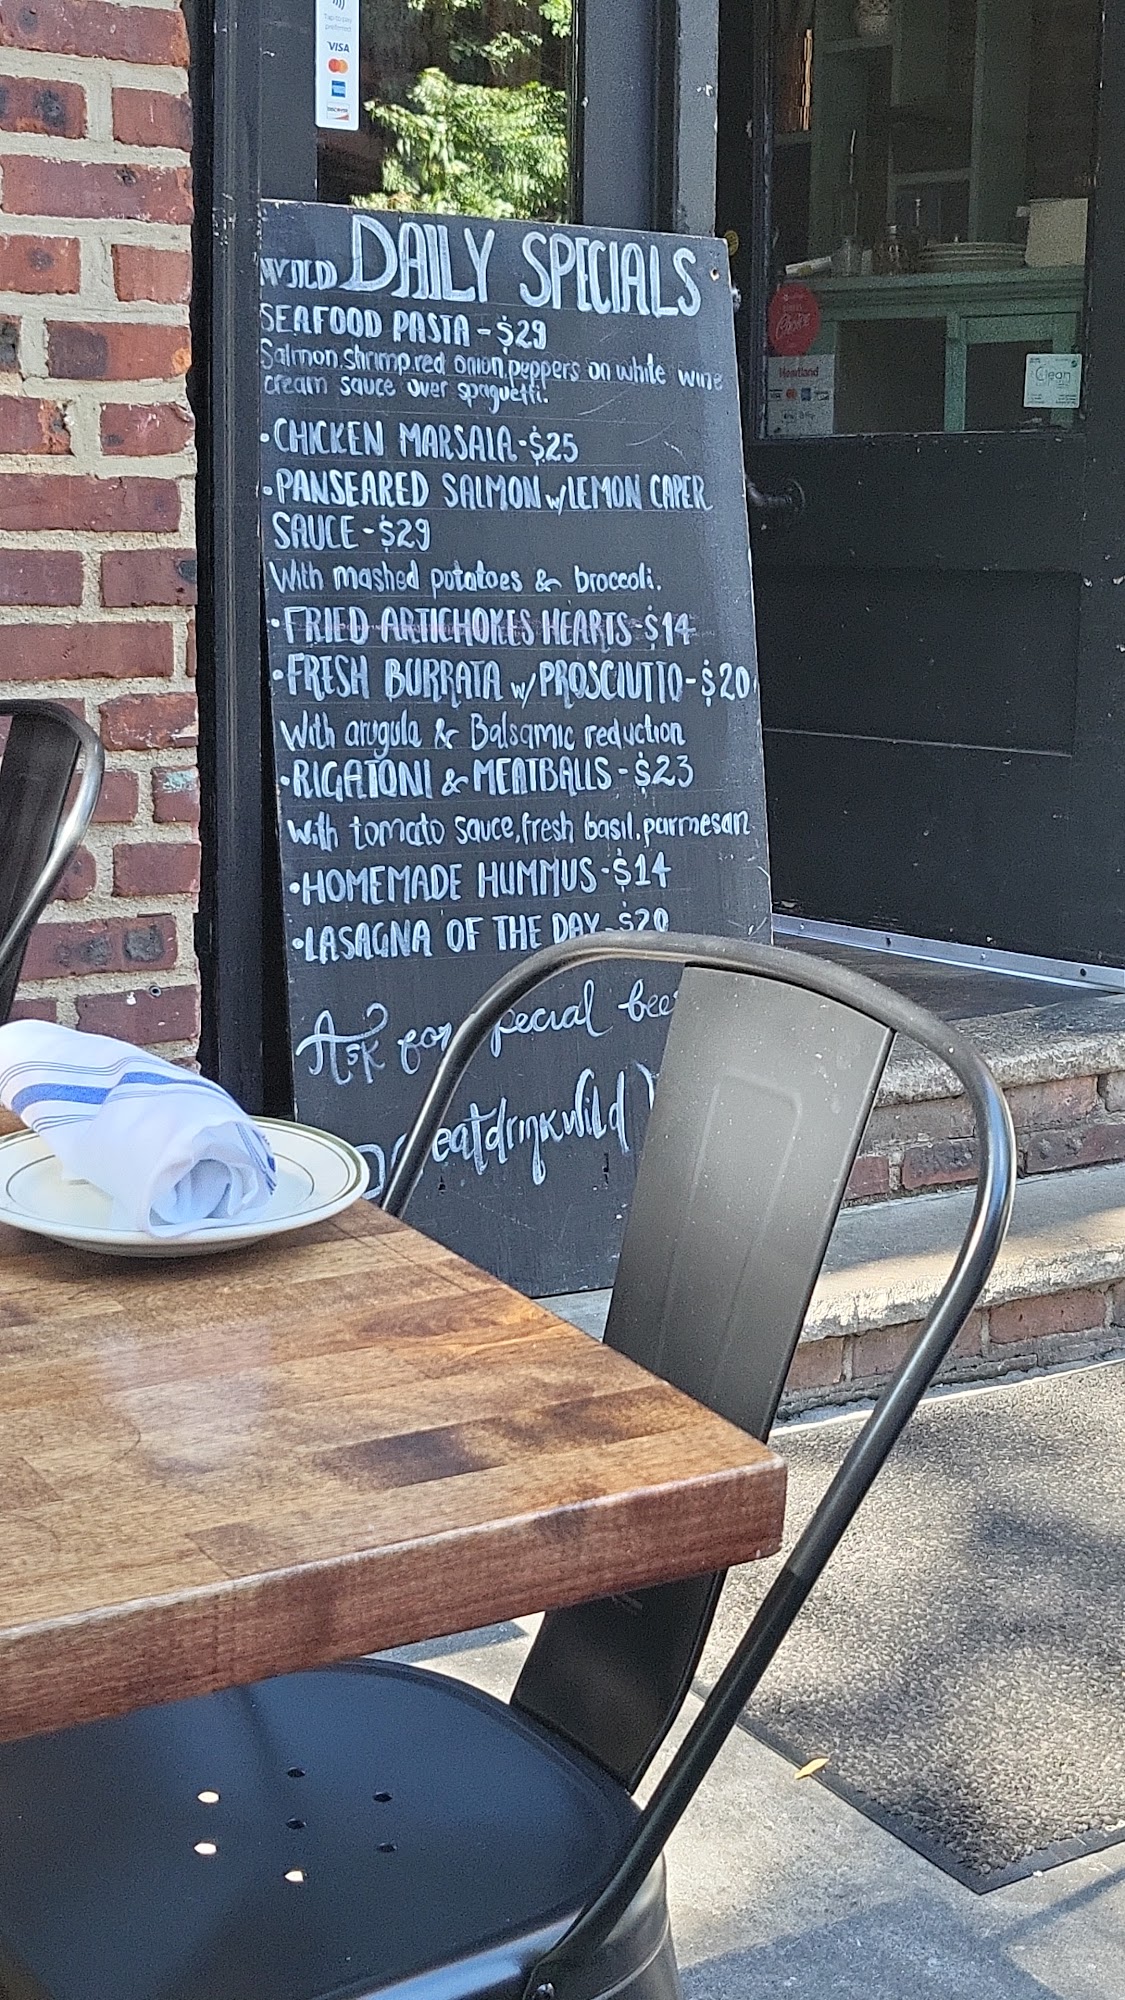 Tap to pay
preferred
VISA
DISCOVER
WILD DAILY SPECIALS
SEAFOOD PASTA - $29
Salmon, shrimp, red onion, peppers on white wine
cream sauce over spaguetti.
• CHICKEN MARSALA - $25
• PANSEARED SALMON w/ LEMON CAPER
SAUCE - $29
With mashed potatoes & broccoli.
• FRIED ARTICHOKES HEARTS - $14
• FRESH BURRATA w/ PROSCIUTTO - $20
With arugula & Balsamic reduction
• RIGATONI & MEATBALLS - $23
with tomato sauce, fresh basil, parmesan
• HOMEMADE HUMMUS - $14
• LASAGNA OF THE DAY - $20
Ask for special
eatdrinkwild
Heartland
Clean